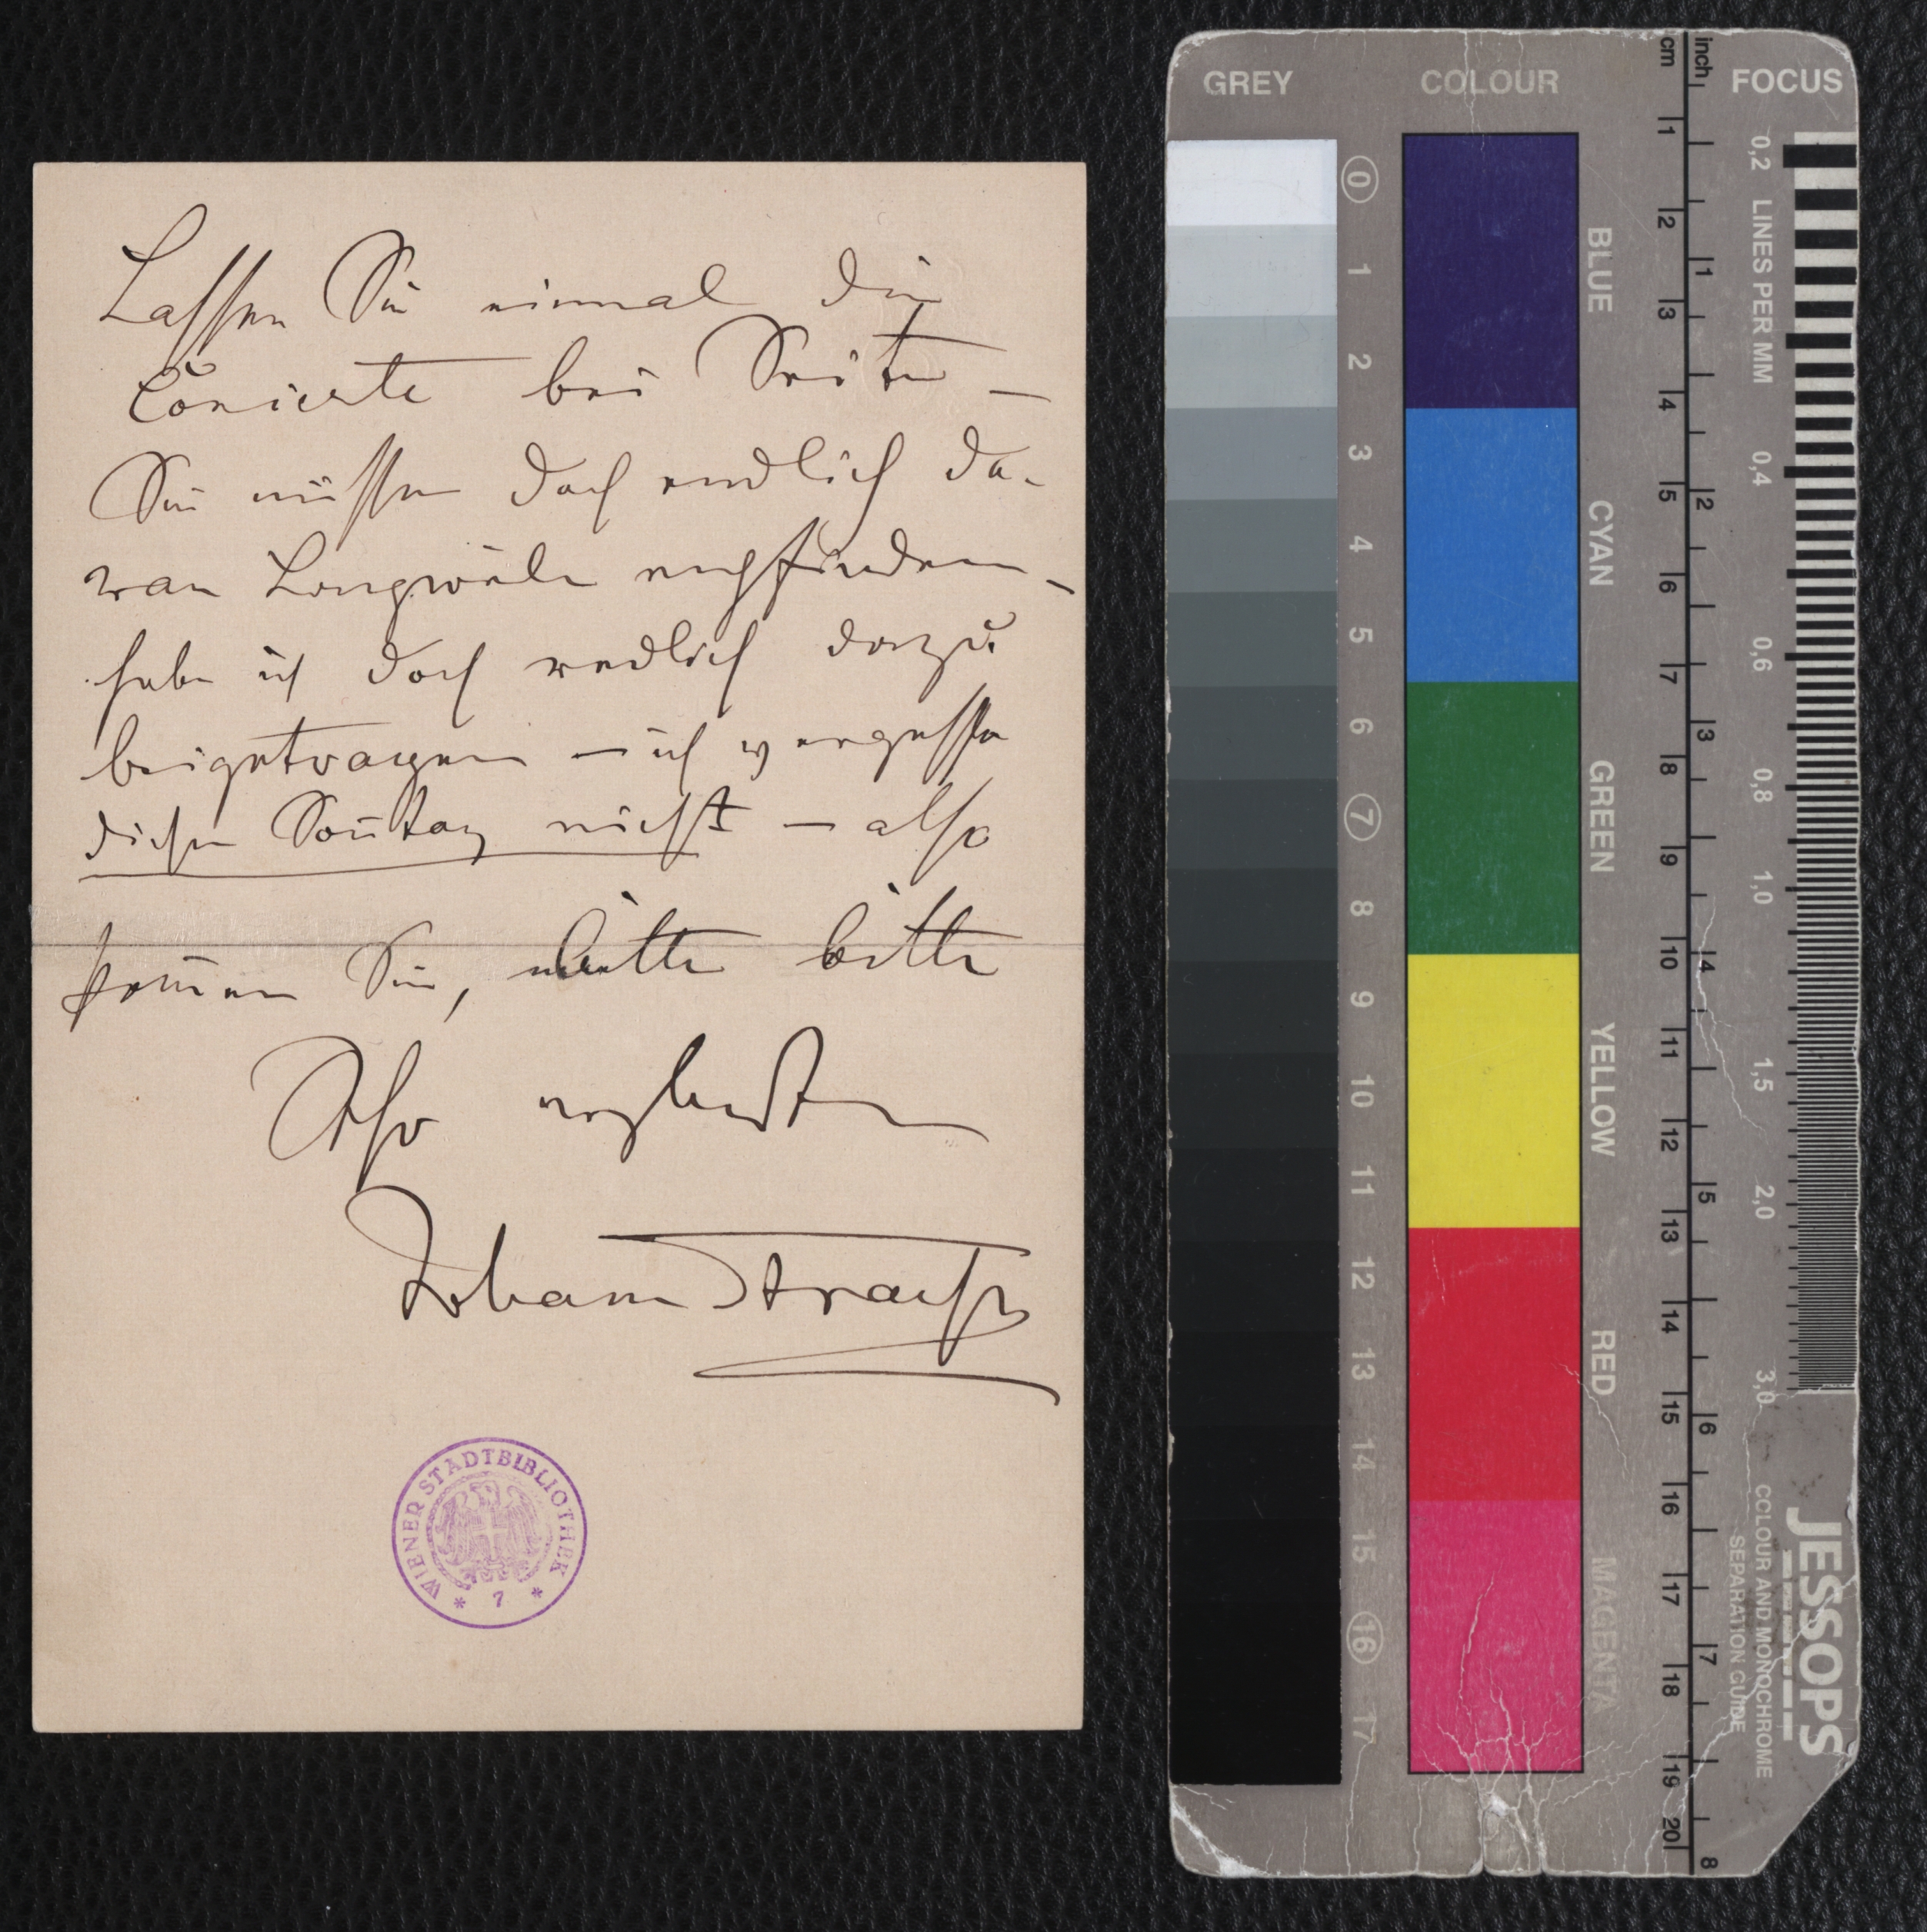 Lassen Sie einmal die
Concerte bei Seite —
Sie müssen doch endlich da-
ran Langweile empfinden —
habe ich doch redlich dazu
beigetragen — ich vergesse
diesen Sonntag nicht — also
kommen Sie, bitte bitte
Also
Johann Strauss
WIENER STADTBIBLIOTHEK
* 7 *
GREY COLOUR FOCUS
cm inch
0 1 2 3 4 5 6 7 8 9 10 11 12 13 14 15 16 17
BLUE
CYAN
GREEN
YELLOW
RED
MAGENTA
1 2 3 4 5 6 7 8 9 10 11 12 13 14 15 16 17 18 19 20
1 2 3 4 5 6 7 8
0,2 LINES PER MM 0,4 0,6 0,8 1,0 1,5 2,0 3,0
JESSOPS
COLOUR AND MONOCHROME
SEPARATION GUIDE